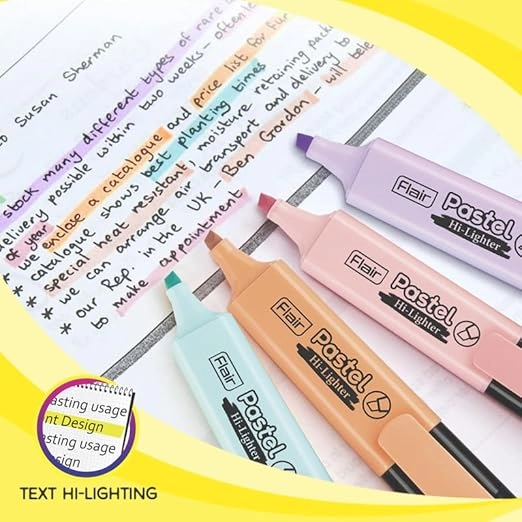 o Susan Sherman
stock many different types of rare
delivery possible within two weeks - often
of year
* we enclose a catalogue and price list for Fur
* catalogue shows best planting times
special heat resistant, moisture retaining
* we can arrange air transport and delivery to
* our Rep. in the UK - Ben Gordon - will tele
to make appointment
Flair
Pastel
Hi-Lighter
Flair
Pastel
Hi-Lighter
Flair
Pastel
Hi-Lighter
Flair
Pastel
Hi-Lighter
asting usage
nt Design
sting usage
sign
TEXT HI-LIGHTING